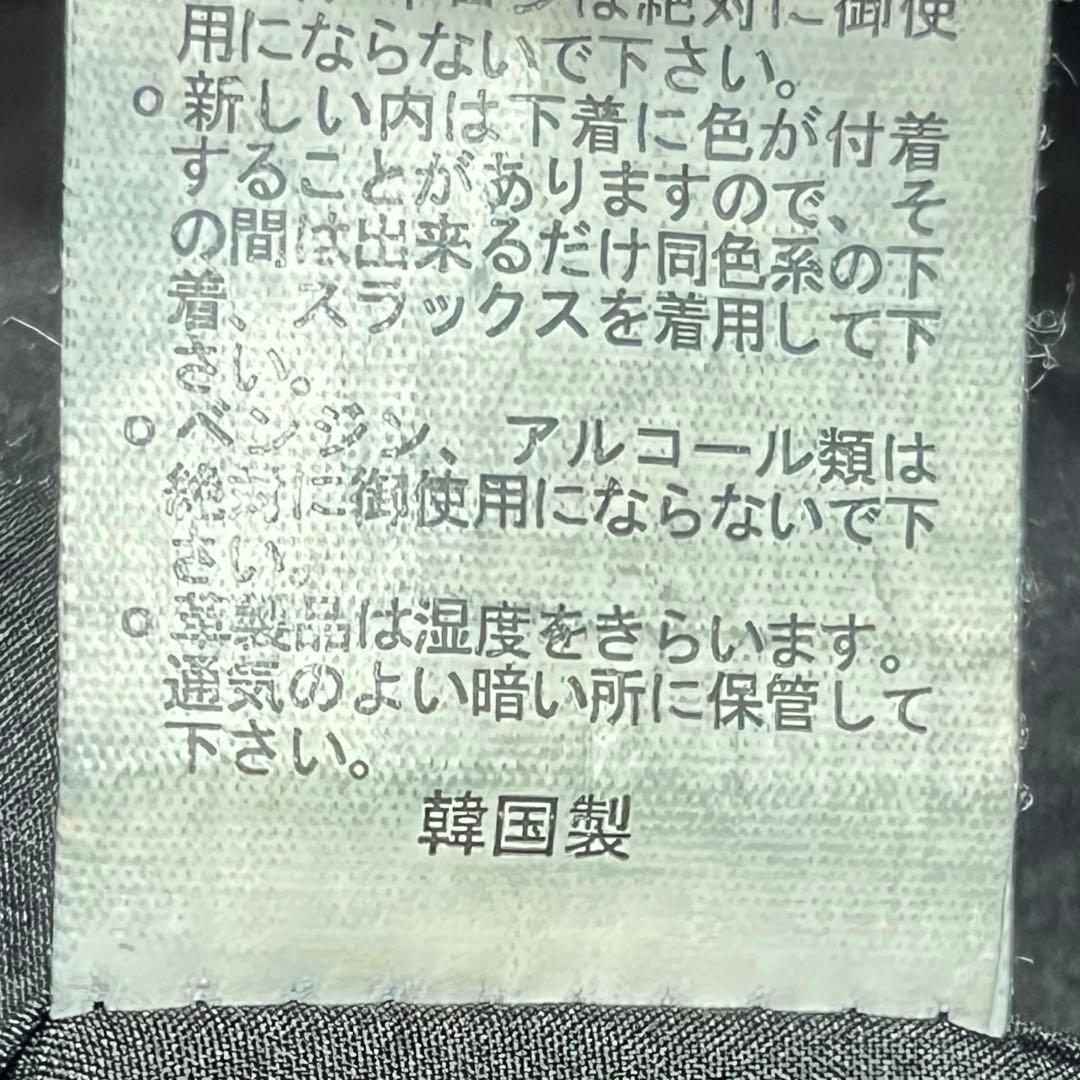 は絶対に御使
用にならないで下さい。
○新しい内は下着に色が付着
することがありますので、そ
の間は出来るだけ同色系の下
着、スラックスを着用して下
さい。
○ベンジン、アルコール類は
絶対に御使用にならないで下
さい。
○革製品は湿度をきらいます。
通気のよい暗い所に保管して
下さい。
韓国製